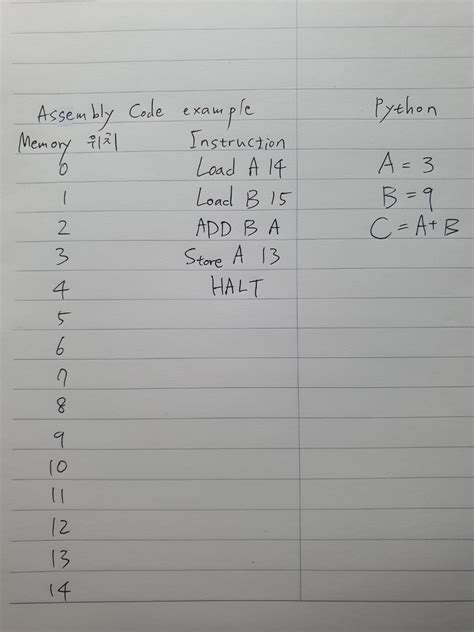 Assembly Code example Python
Memory 위치 Instruction
0 Load A 14 A = 3
1 Load B 15 B = 9
2 ADD B A C = A+B
3 Store A 13
4 HALT
5
6
7
8
9
10
11
12
13
14